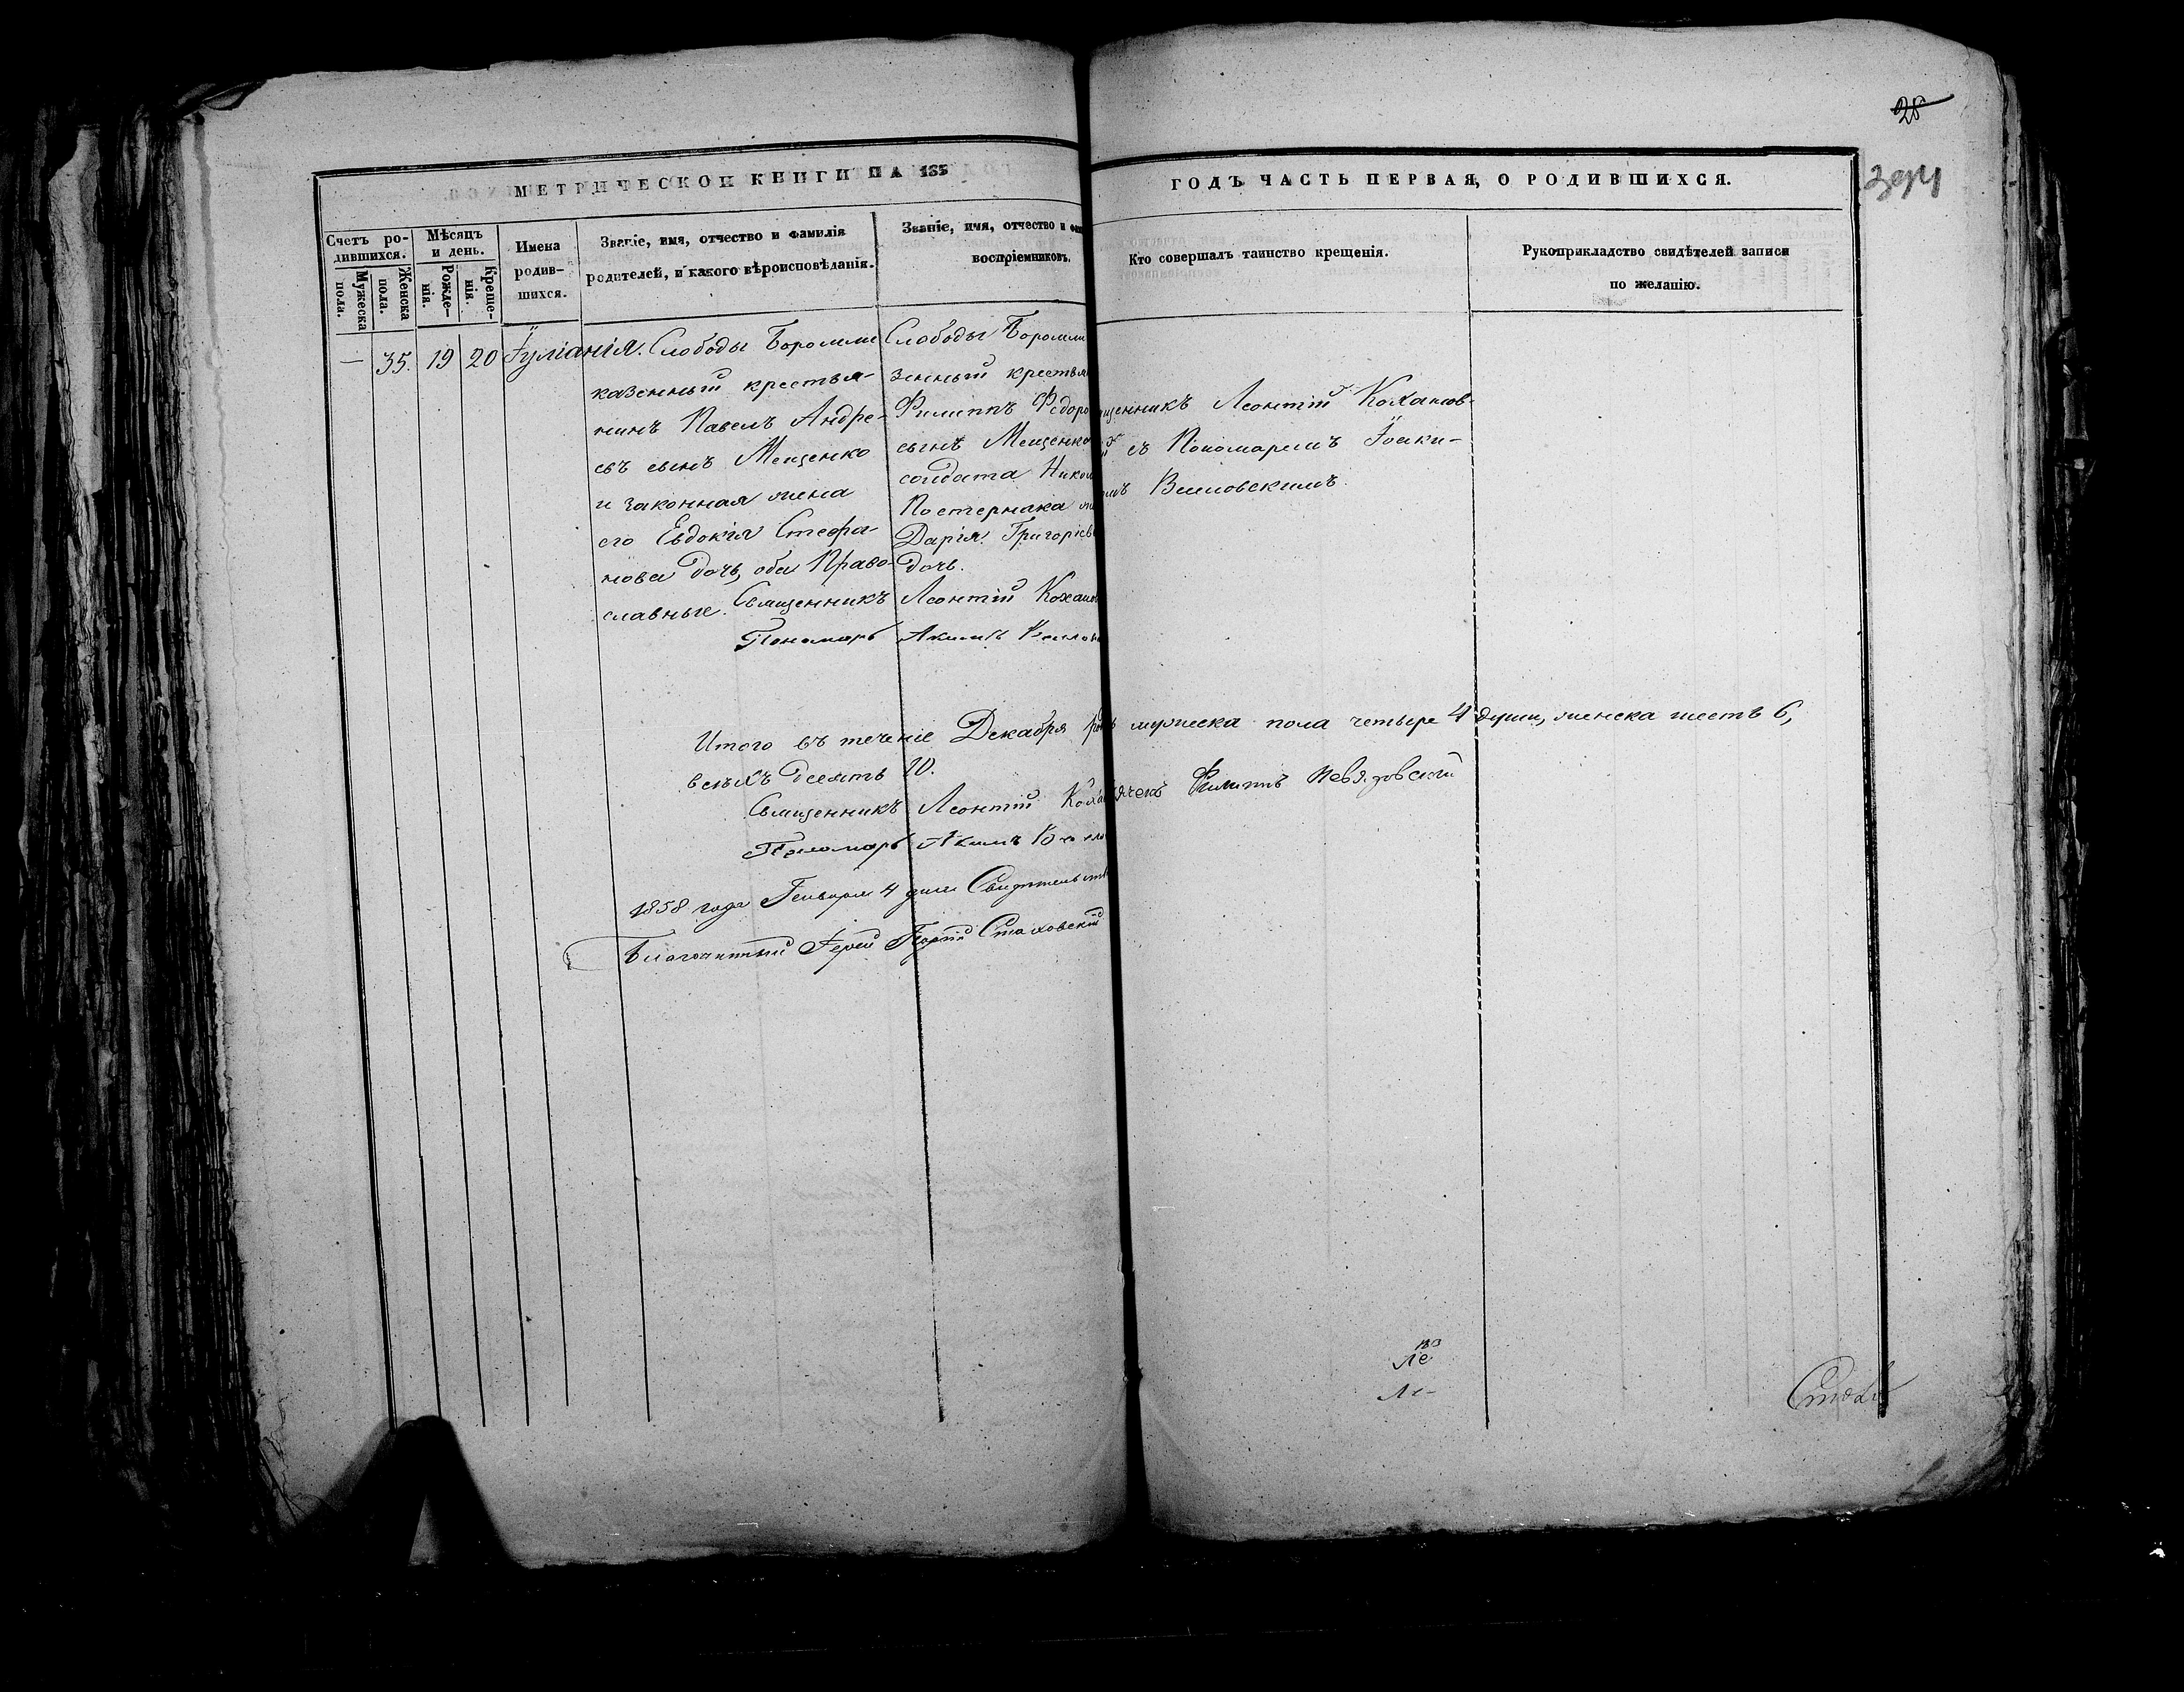 28
394
МЕТРИЧЕСКОЙ КНИГИ НА 185
ГОДЪ ЧАСТЬ ПЕРВАЯ, О РОДИВШИХСЯ.
Счетъ ро-
дившихся.
Мужеска
пола.
Женска
пола.
Мѣсяцъ
и день.
Рожде-
нія.
Креще-
нія.
Имена
родив-
шихся.
Званіе, имя, отчество и фамилія
родителей, и какого вѣроисповѣданія.
Званіе, имя, отчество и фам
воспріемниковъ.
Кто совершалъ таинство крещенія.
Рукоприкладство свидѣтелей записи
по желанію.
— 35. 19 20 Іуліанія.
Слободы Боромли
казенный крестья-
нинъ Павелъ Андре-
евъ сынъ Мещенко
и законная жена
его Евдокія Стефа-
нова дочь, оба Право-
славные.
Слободы Боромли
зенный крестья
Филиппъ Федоро
сынъ Мещенко
солдата Никол
Постернака
Дарія Григоріев
дочь.
щенникъ Леонтій Кохановъ-
й съ Пономаремъ Іоаки-
мъ
Священникъ Леонтій Кохано
Пономарь Акимъ
Итого въ течение Декабря мужеска пола четыре 4 души, женска шесть 6,
всѣхъ десять 10.
Священникъ Леонтій Коха
ячекъ Филиппъ
Пономарь Акимъ
1858 года Генваря 4 дня Свидѣтельств
Благочинный Іерей Стаховскій